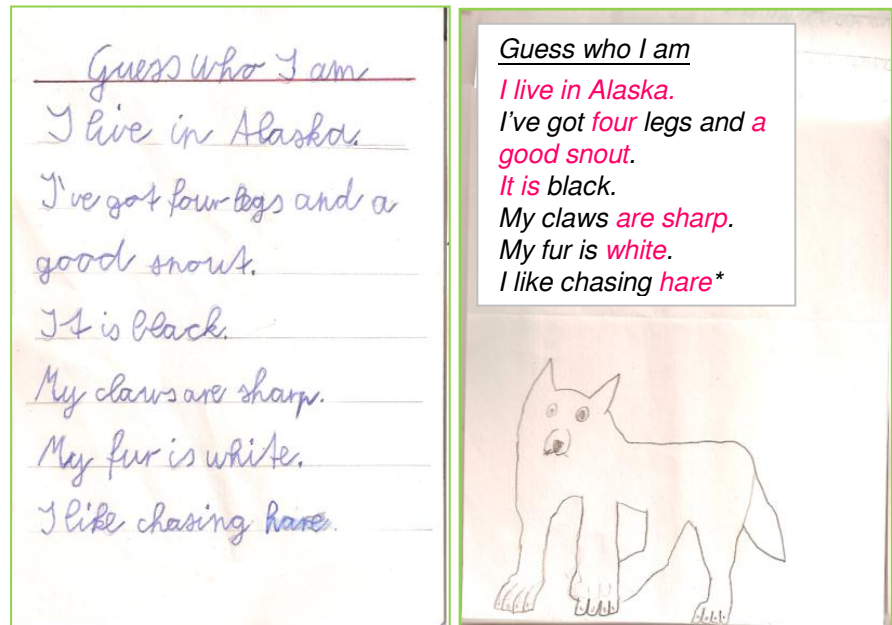 Guess who I am
I live in Alaska.
I've got four legs and a
good snout.
It is black.
My claws are sharp.
My fur is white.
I like chasing hare.
Guess who I am
I live in Alaska.
I've got four legs and a
good snout.
It is black.
My claws are sharp.
My fur is white.
I like chasing hare*